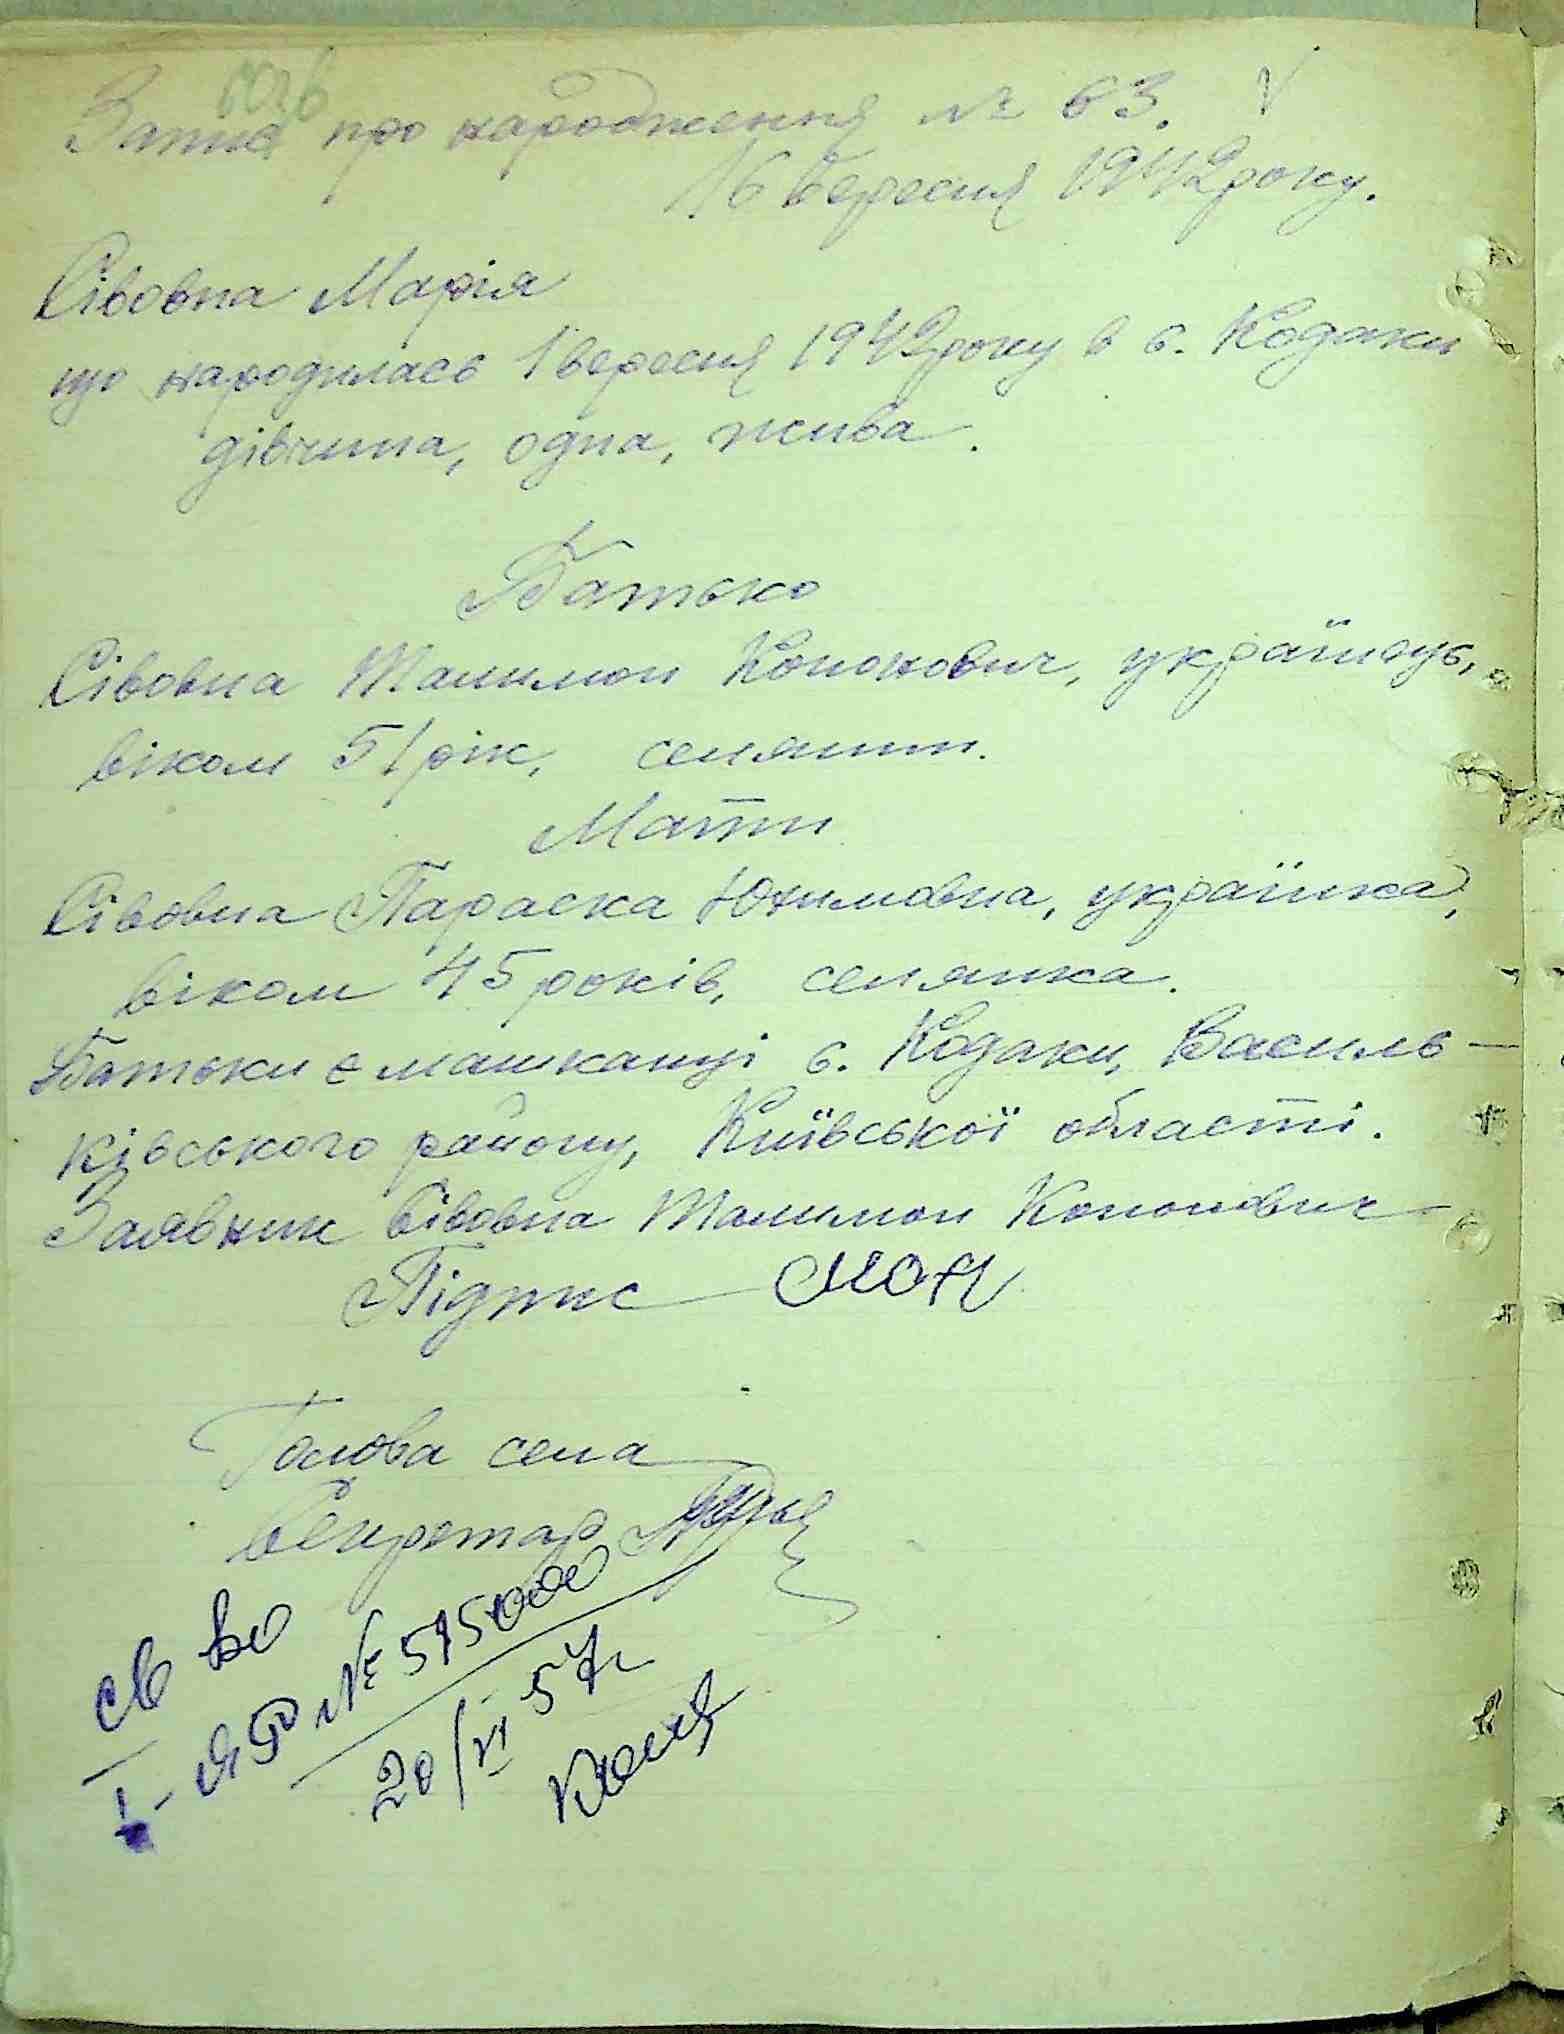 Запис про народження № 63.
16 вересня 1942 року.
Сівовна Марія
що народилась 1 вересня 1942 року в с. Кодаки
дівчина, одна, жива.
Батько
Сівовна Талимон Кононович, українець,
віком 51 рік, селянин.
Мати
Сівовна Параска Юхимовна, українка,
віком 45 років, селянка.
Батьки є мешканці с. Кодаки, Василь-
ківського району, Київської області.
Заявник Сівовна Талимон Кононович
Підпис
Голова села
Секретар
св во
I - № 515000
20/VI 57 г